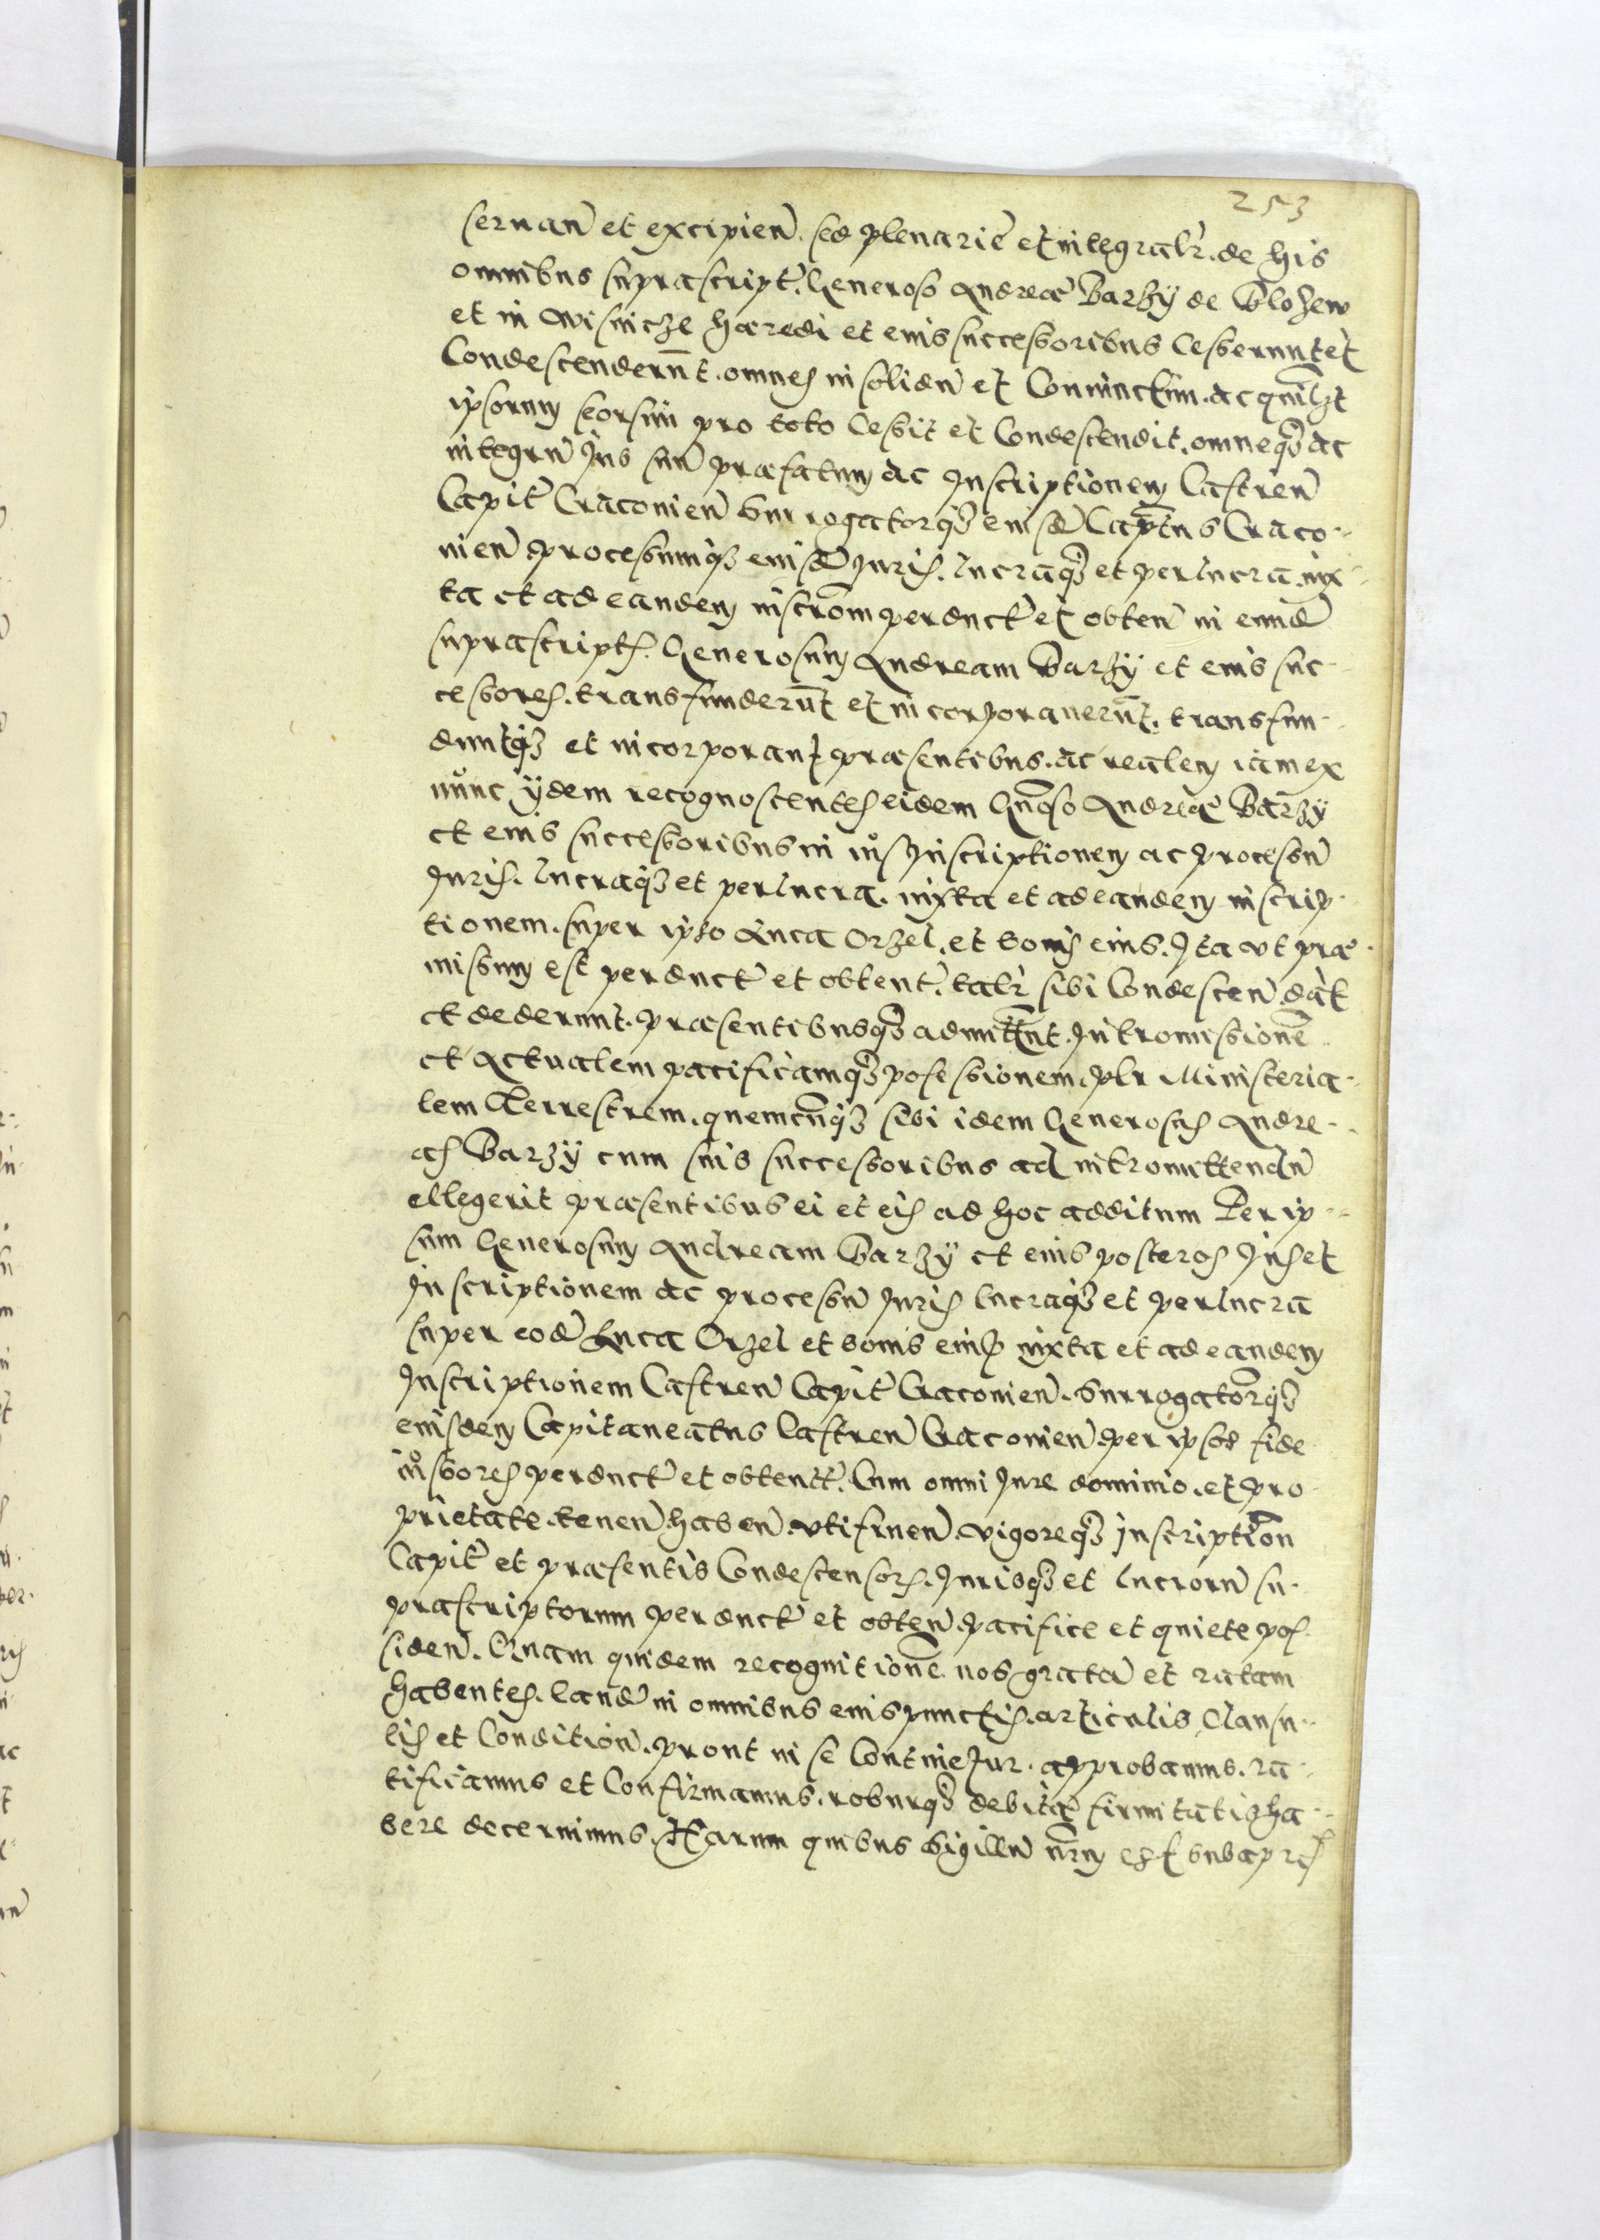 253
seruan et excipien. sed plenarie et integralr. de his
omnibus suprascript. Generoso Andreae Barzy de Blozew
et in Wisnicze haeredi et eius successoribus Cesserunt et
Condescenderunt. omnes in solidu et Coniunctim. ac quilzt
ipsorum seorsim pro toto Cessit et Condescendit. omneq3 ac
integru Ius suu praefatum ac Inscriptionem Castren
Capit Cracouien Surrogatorq3 eiusd Captus Craco-
uien processumq3 eiusd Iuris. lucraq3 et perlucra iux-
ta et ad eandem inscrom perduct et obten in eund
suprascripts. Generosum Andream Barzy et eius suc-
cessores. transfuderut et incorporauerut. transfun-
duntq3 et incorporant praesentibus. ac realem iam ex
nunc ijdem recognoscentes eidem Gnoso Andreae Barzy
et eius successoribus in ius Inscriptionem ac processu
Iuris. lucraq3 et perlucra. iuxta et ad eandem inscrip-
tionem. super ipso Luca Orzel. et bonis eius. Ita vt prae-
missum est perduct et obtent. talr sibi Condescen. dat
et dederunt. praesentibusq3 admittunt. Intromissione
et Actualem pacificamq3 possessionem. plr Ministeria-
lem Terrestrem. quemcunq3 sibi idem Generosus Andre-
as Barzy cum suis successoribus ad intromittendu
ellegerit praesentibus ei et eis ad hoc additum Per ip-
sum Generosum Andream Barzy et eius posteros Ius et
Inscriptionem ac processu Iuris lucraq3 et perlucra
super eod Luca Orzel et bonis eius iuxta et ad eandem
Inscriptionem Castren Capit Cracouien. Surrogatorq3
eiusdem Capitaneatus Castren Cracouien. per ipsos fide-
iussores perduct et obtent. Cum omni Iure dominio. et pro-
prietate. tenen. haben. vtifruen. vigoreq3 inscription
Capit et praesentis Condescensors. Iurisq3 et lucroru su-
prascriptorum perduct et obten. pacifice et quiete pos-
siden. Quam quidem recognitione nos grata et ratam
habentes. Eand in omnibus eius punctis. articulis Clausu-
lis et Condition. prout in se Continetur. approbamus. ra-
tificamus et Confirmamus. roburq3 debitae firmitatis ha-
bere decernimus. Harum quibus Sigillu nrm est subapres